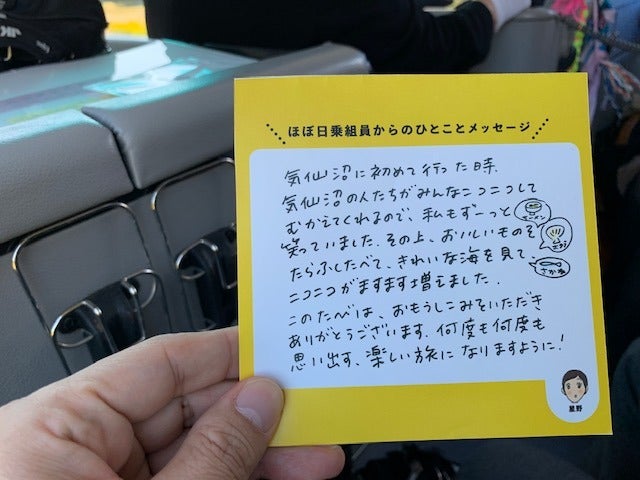 ほぼ日乗組員からのひとことメッセージ
気仙沼に初めて行った時、
気仙沼の人たちがみんなニコニコして
むかえてくれるので、私もずーっと
笑っていました。その上、おいしいものを
たらふくたべて、きれいな海を見て、
ニコニコがますます増えました。
このたべは、おもうしこみをいただき
ありがとうございます。何度も何度も
思い出す、楽しい旅になりますように!
ラーメン
さかな
星野